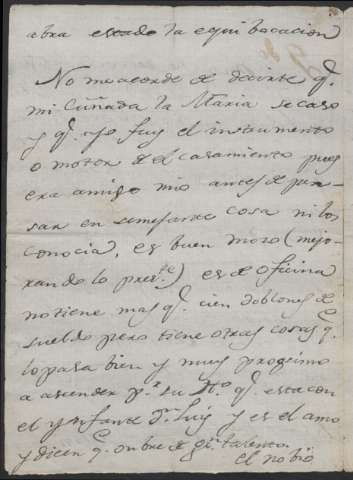 abra estado la equibocacion
No me acorde de decirte q.
mi cuñada la Maria se caso
y q. yo fuy el instrumento
o motor de el casamiento pues
era amigo mio antes de pen-
sar en semejante cosa ni los
conocia, es buen moro (mejo-
rando lo pres.te) es de oficina
no tiene mas q. cien doblones de
sueldo pero tiene otras cosas q.
lo pasa bien y muy progsimo
a ascender p.r su t.o q. esta con
el ynfante D.n Luis y es el amo
y dicen q. onbre de gr. talento
el nobio